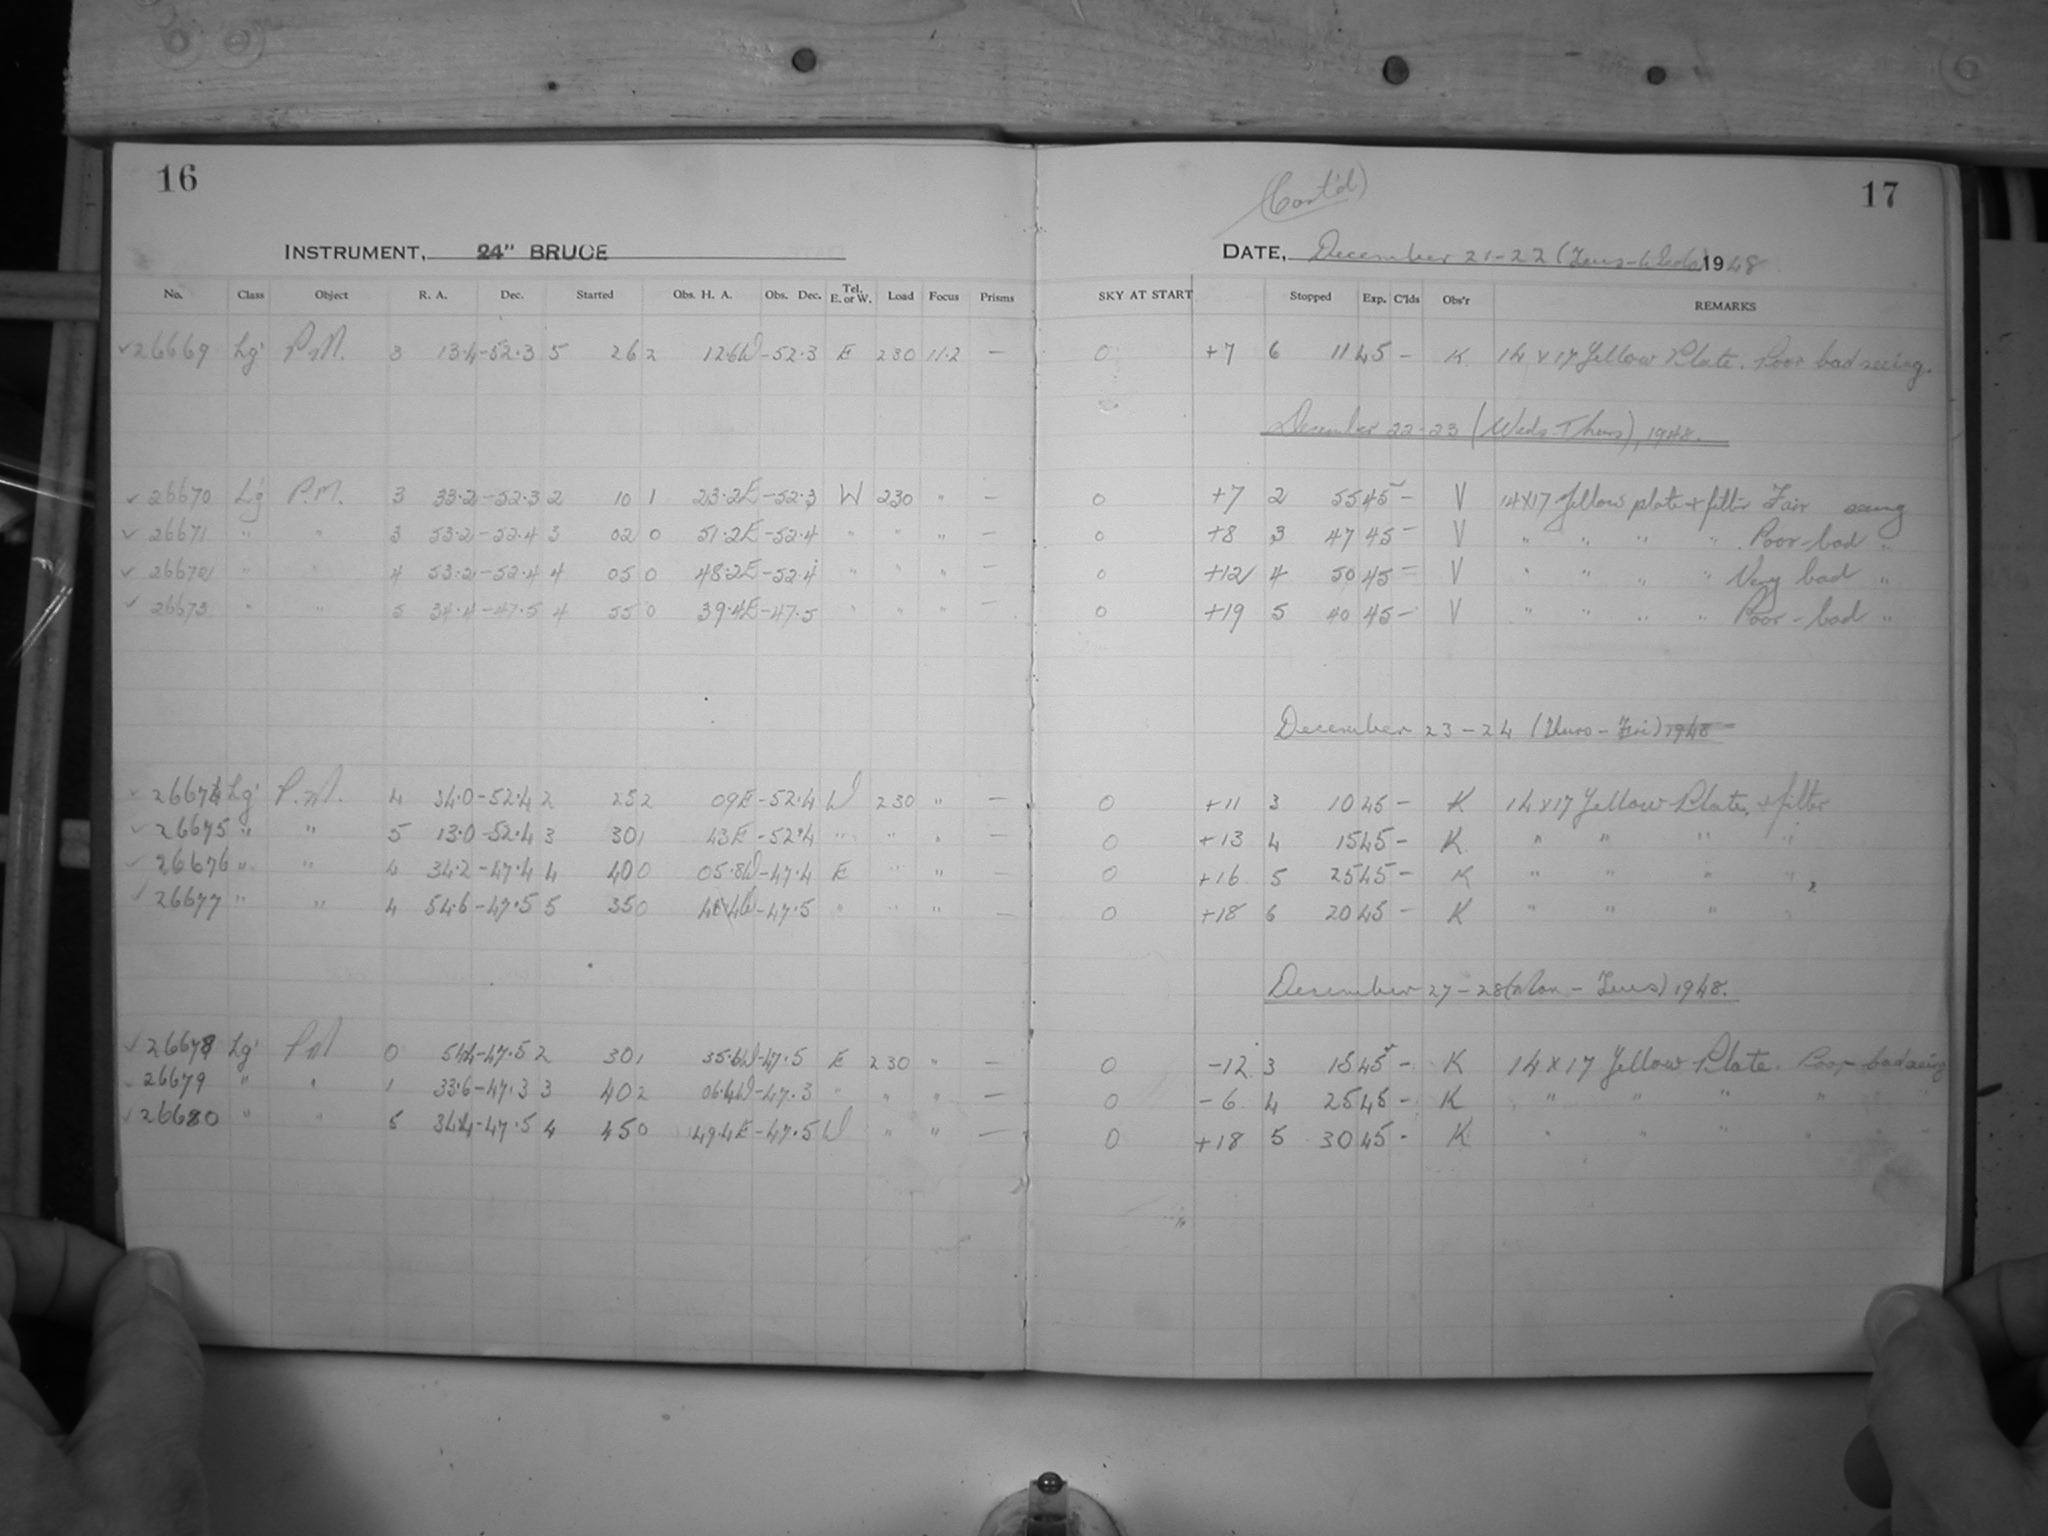 16
INSTRUMENT, 24" BRUCE
No. Class Object R. A. Dec. Started Obs. H. A. Obs. Dec. Tel. E. or W. Load Focus Prisms
✓26669 Lg' P.M. 3 13.4 -52.3 5 26 2 12.6W -52.3 E 230 11.2 —
✓26670 Lg P.M. 3 33.2 -52.3 2 10 1 23.2E -52.3 W 230 " —
✓26671 " " 3 53.2 -52.4 3 02 0 51.2E -52.4 " " " —
✓26672 " " 4 53.2 -52.4 4 05 0 48.2E -52.4 " " " —
✓26673 " " 5 34.4 -47.5 4 55 0 39.4E -47.5 " " " —
✓26674 Lg' P.M. 4 34.0 -52.4 2 25 2 09E -52.4 W 230 " —
✓26675 " " 5 13.0 -52.4 3 30 1 43E -52.4 " " " —
✓26676 " " 4 34.2 -47.4 4 40 0 05.8W -47.4 E " " —
✓26677 " " 4 54.6 -47.5 5 35 0 -47.5 " " " —
✓26678 Lg' P.M 0 54.4 -47.5 2 30 1 35.6W -47.5 E 230 " —
26679 " " 1 33.6 -47.3 3 40 2 06.4W -47.3 " " " —
✓26680 " " 5 34.4 -47.5 4 45 0 49.4E -47.5 W " " —
17
(Cont'd)
DATE, December 21-22 (Tues-Weds) 1948
SKY AT START Stopped Exp. C'lds Obs'r REMARKS
0 +7 6 11 45 – K 14 x 17 Yellow Plate. Poor bad seeing.
December 22-23 (Weds-Thurs), 1948.
0 +7 2 55 45 – V 14X17 Yellow plate + filter Fair seeing
0 +8 3 47 45 – V " " " " Poor-bad "
0 +12 4 50 45 – V " " " " Very bad "
0 +19 5 40 45 – V " " " " Poor-bad "
December 23-24 (Thurs-Fri) 1948
0 +11 3 10 45 – K 14x17 Yellow Plate, + filter
0 +13 4 15 45 – K " " " "
0 +16 5 25 45 – K " " " "
0 +18 6 20 45 – K " " " "
December 27-28 (Mon-Tues) 1948.
0 -12 3 15 45 – K 14 x 17 Yellow Plate. Poor-bad seeing
0 -6 4 25 45 – K " " " "
0 +18 5 30 45 – K " " " "